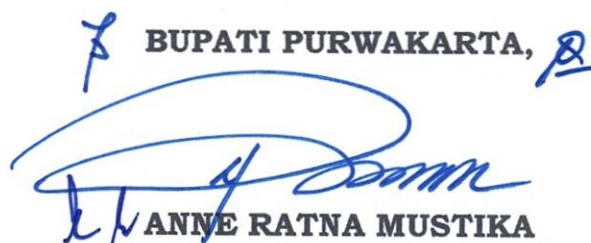 BUPATI PURWAKARTA,
ANNE RATNA MUSTIKA